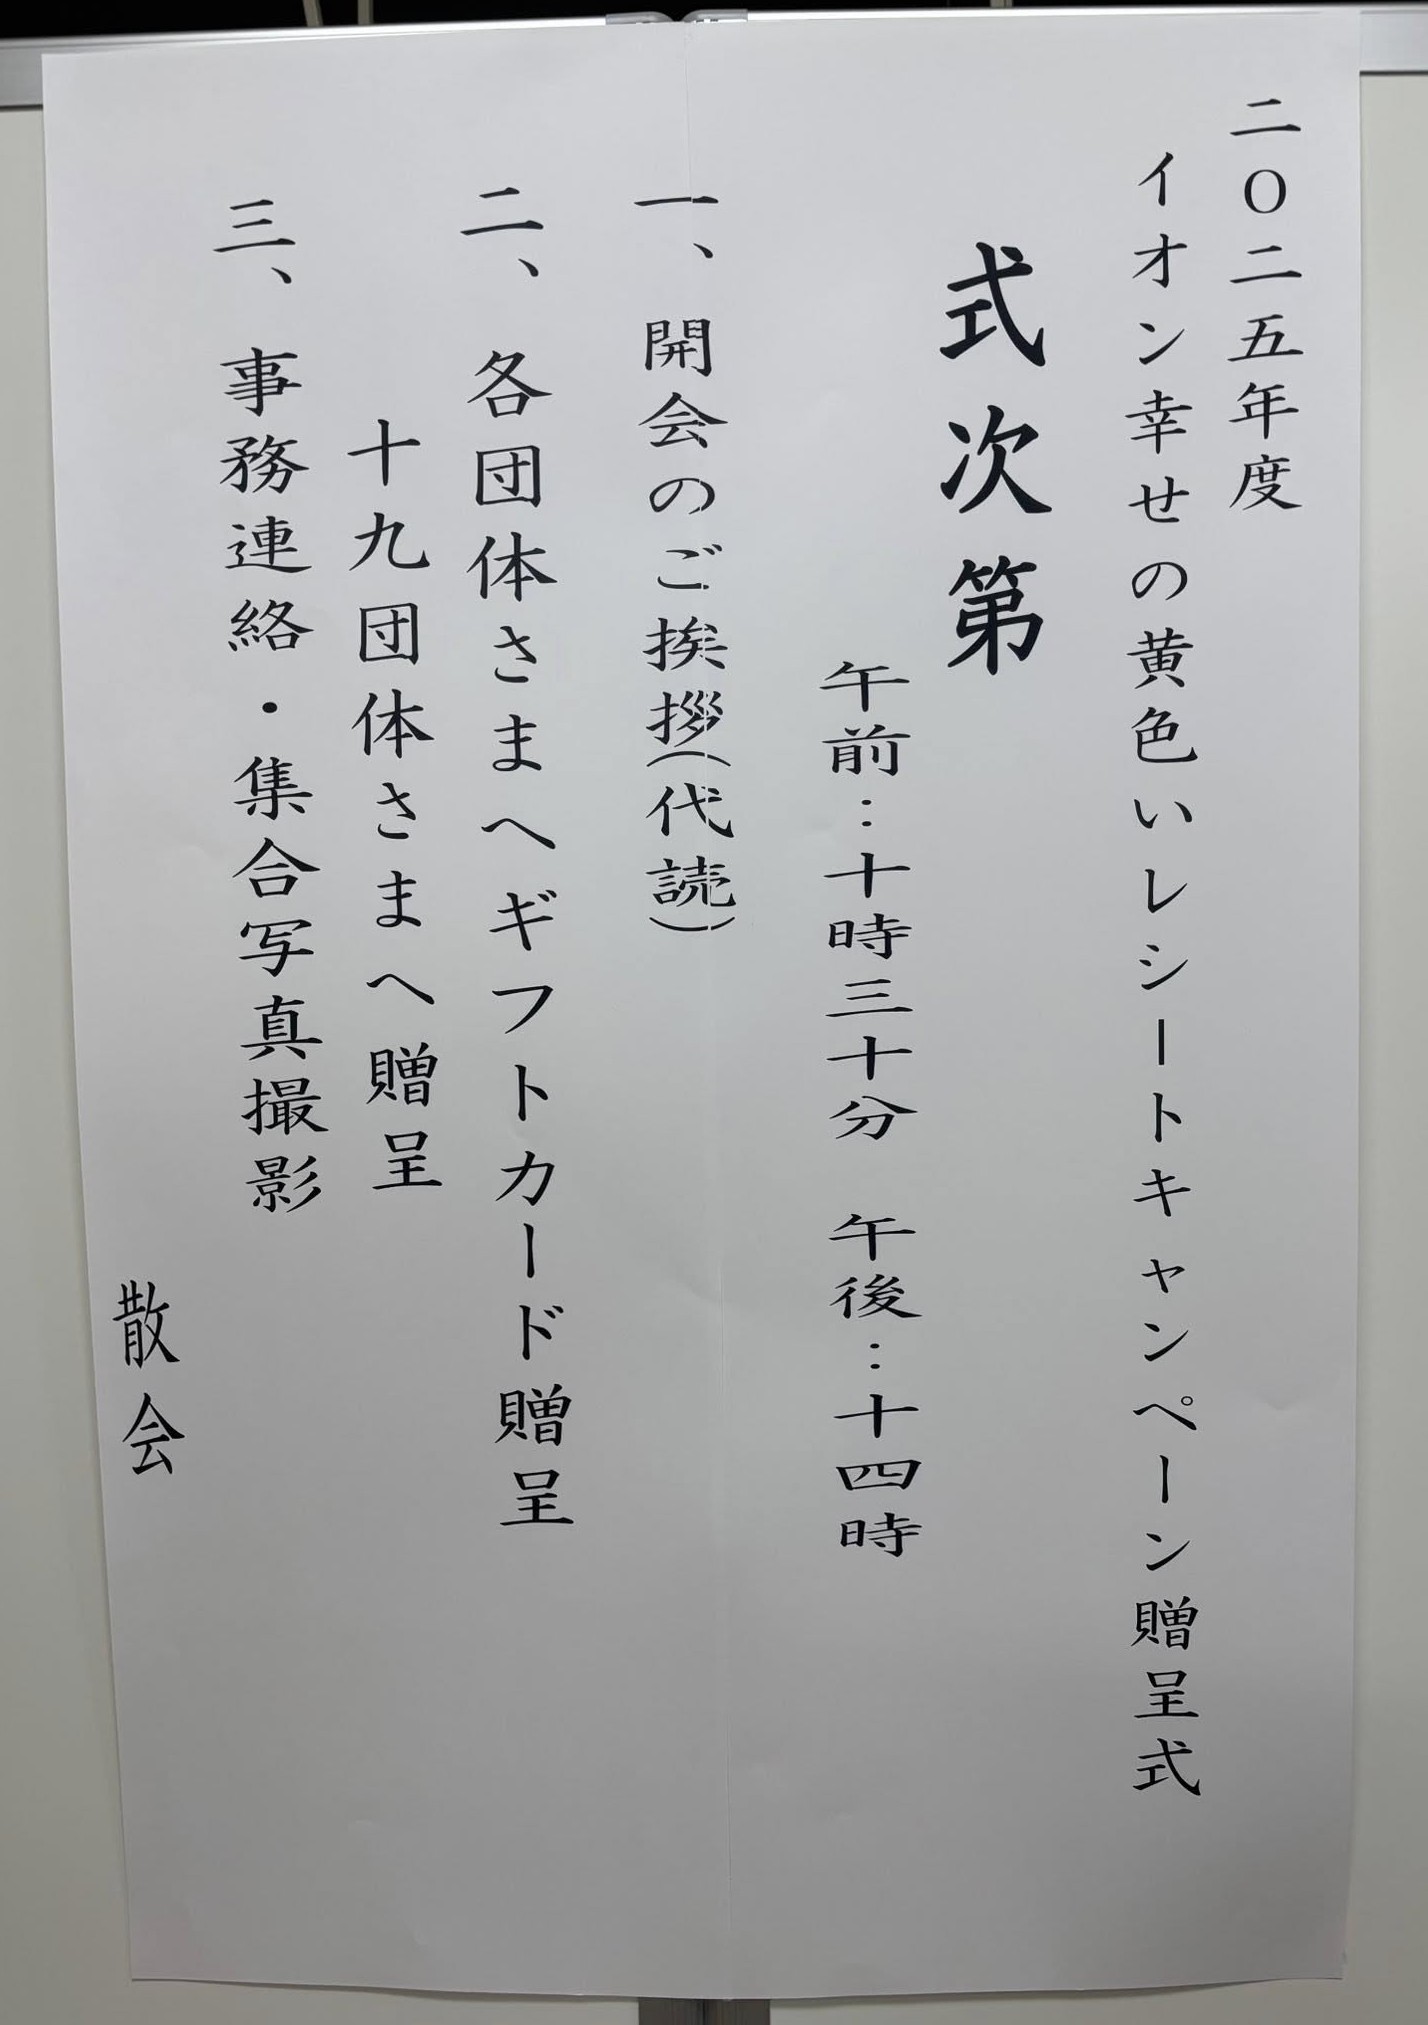 二〇二五年度
イオン幸せの黄色いレシートキャンペーン贈呈式
式次第
午前…十時三十分　午後…十四時
一、開会のご挨拶(代読)
二、各団体さまへギフトカード贈呈
十九団体さまへ贈呈
三、事務連絡・集合写真撮影
散会